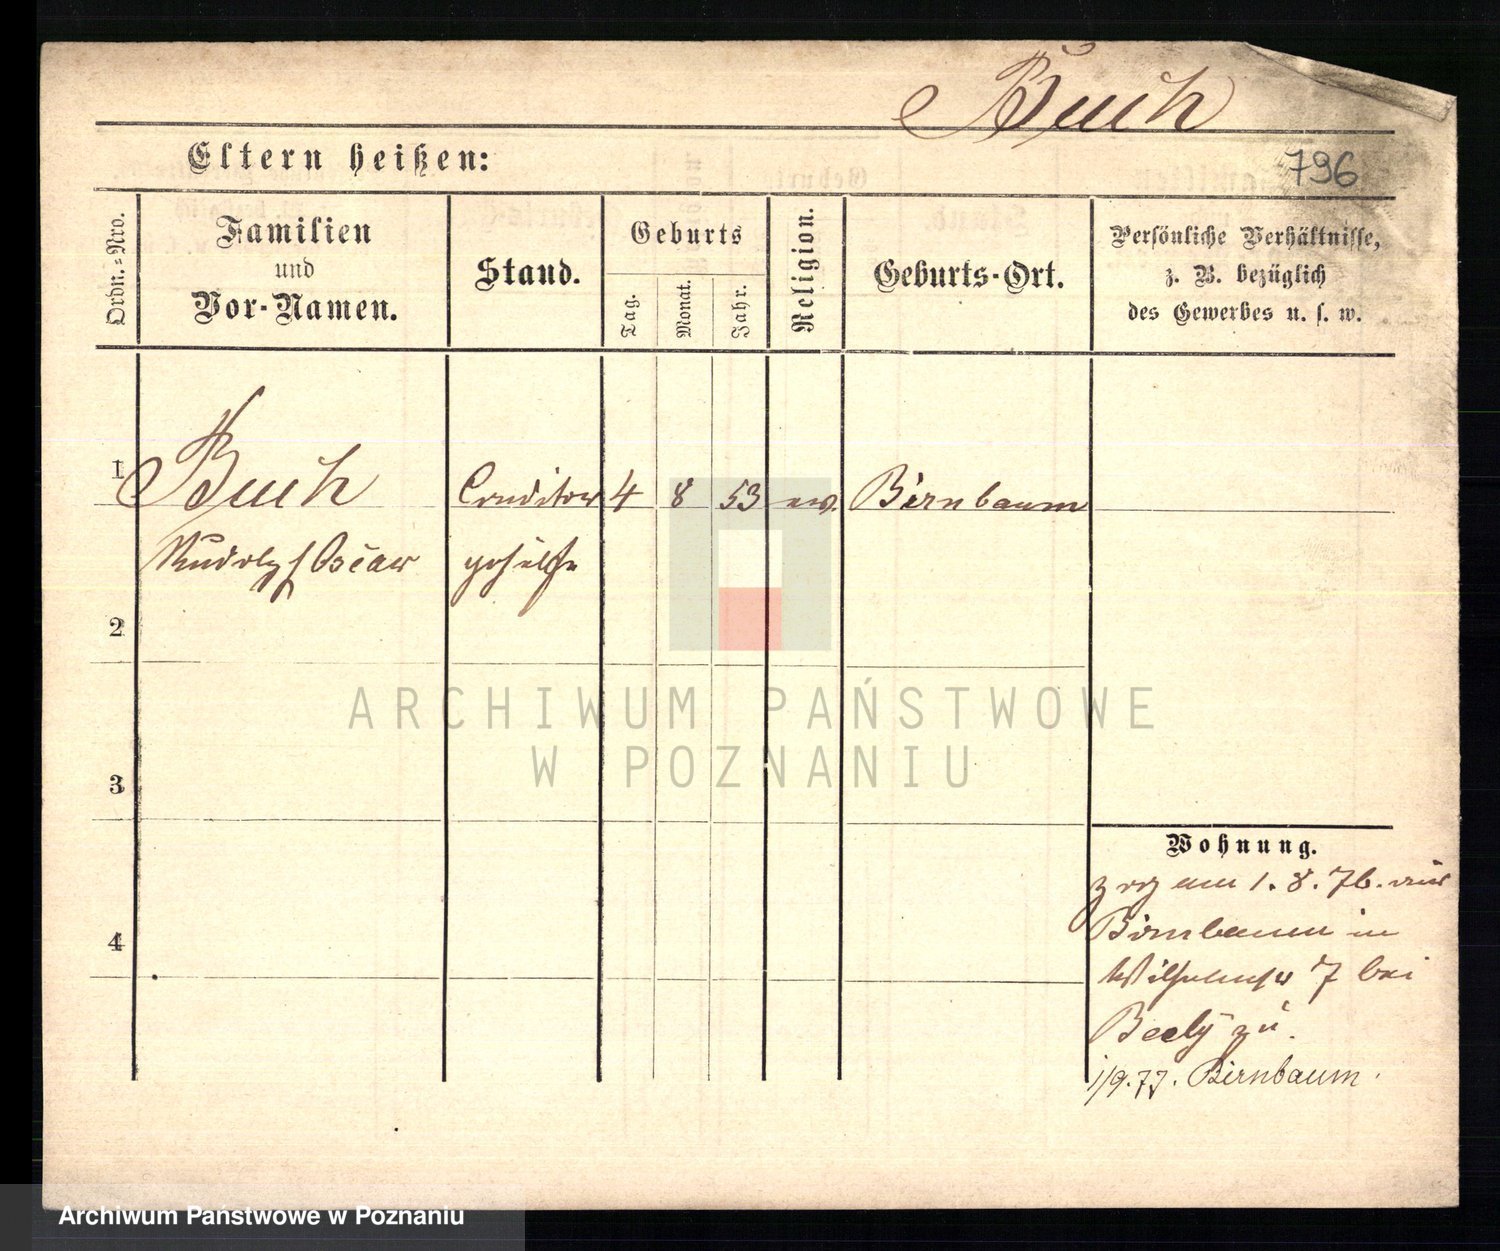 Buch
Eltern heißen:
796
Ordn.-Nro.
Familien
und
Vor-Namen.
Stand.
Geburts
Tag.
Monat.
Jahr.
Religion.
Geburts-Ort.
Persönliche Verhältnisse,
z. B. bezüglich
des Gewerbes u. s. w.
1
Buch
Conditor
4
8
53
ev.
Birnbaum
Rudolph Oscar
gehülfe
2
3
4
Wohnung.
zog am 1.8.76. aus
Birnbaum in
Wilhelmstr 7 bei
Beely zu.
1/9.77. Birnbaum.
ARCHIWUM PAŃSTWOWE
W POZNANIU
Archiwum Państwowe w Poznaniu